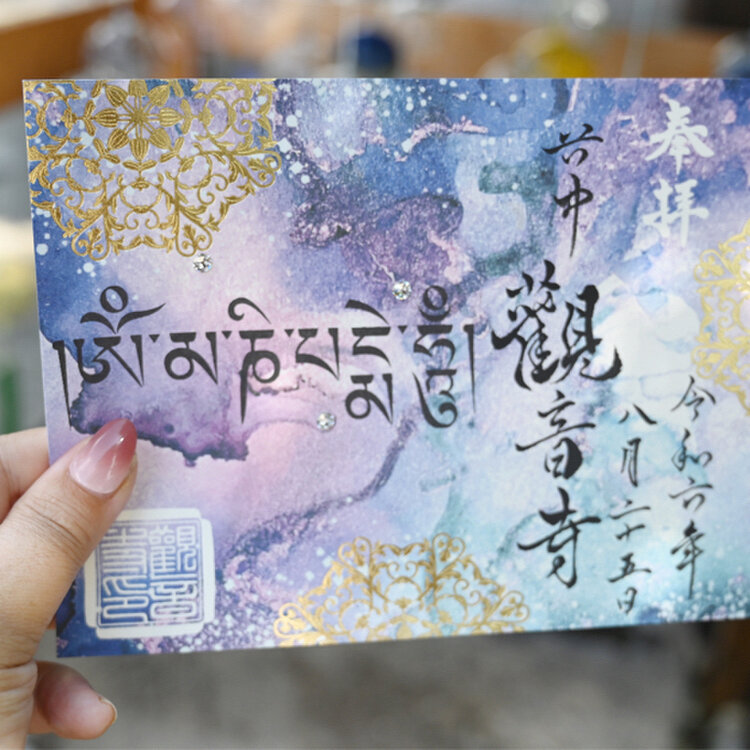 奉拝
令和六年
八月二十五日
中
觀音寺
།ཨོཾ་མ་ཎི་པདྨེ་ཧཱུྃ།
觀音
寺印